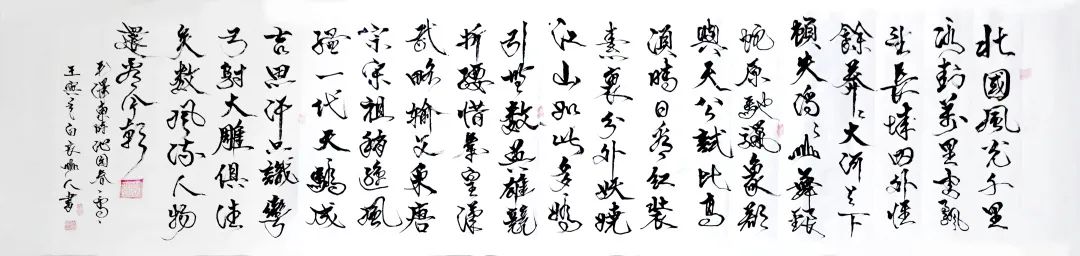 北國風光千里
冰封萬里雪飄
望長城內外惟
餘莽〻大河上下
頓失滔〻山舞銀
蛇原馳蠟象欲
與天公試比高
須晴日看紅裝
素裹分外妖嬈
江山如此多嬌
引無數英雄競
折腰惜秦皇漢
武略輸文采唐
宗宋祖稍遜風
騷一代天驕成
吉思汗只識彎
弓射大雕俱往
矣數風流人物
還看今朝
毛澤東詩沁園春雪
王 白衣 人書